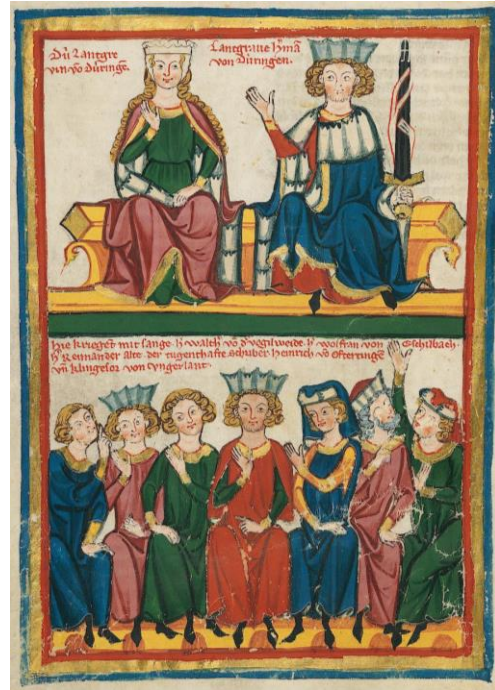 Dú Lantgre
vin vō Dúringē.
Lantgraue h'mā
von Dúringen.
Hie krieget mit sange. h' walth' vō d' vogilweide. h' wolfran von Eschilbach.
h' Reinman der Alte. der tugenthafte schriber. Heinrich vō Ofteringē.
vn̄ klingesor von vngerlant.